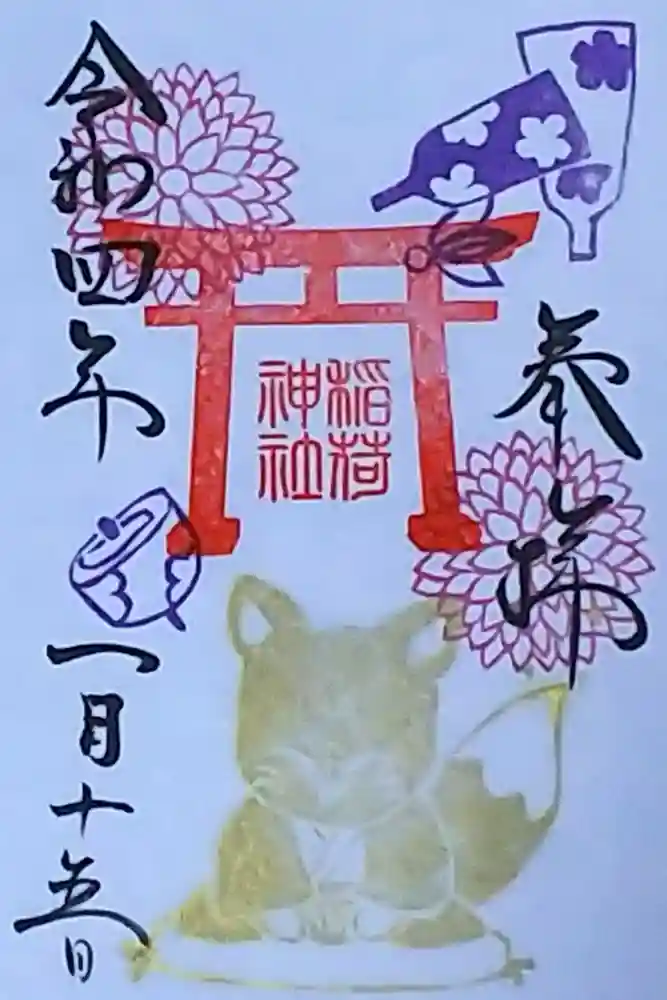 奉拝
稲荷
神社
令和四年
一月十五日